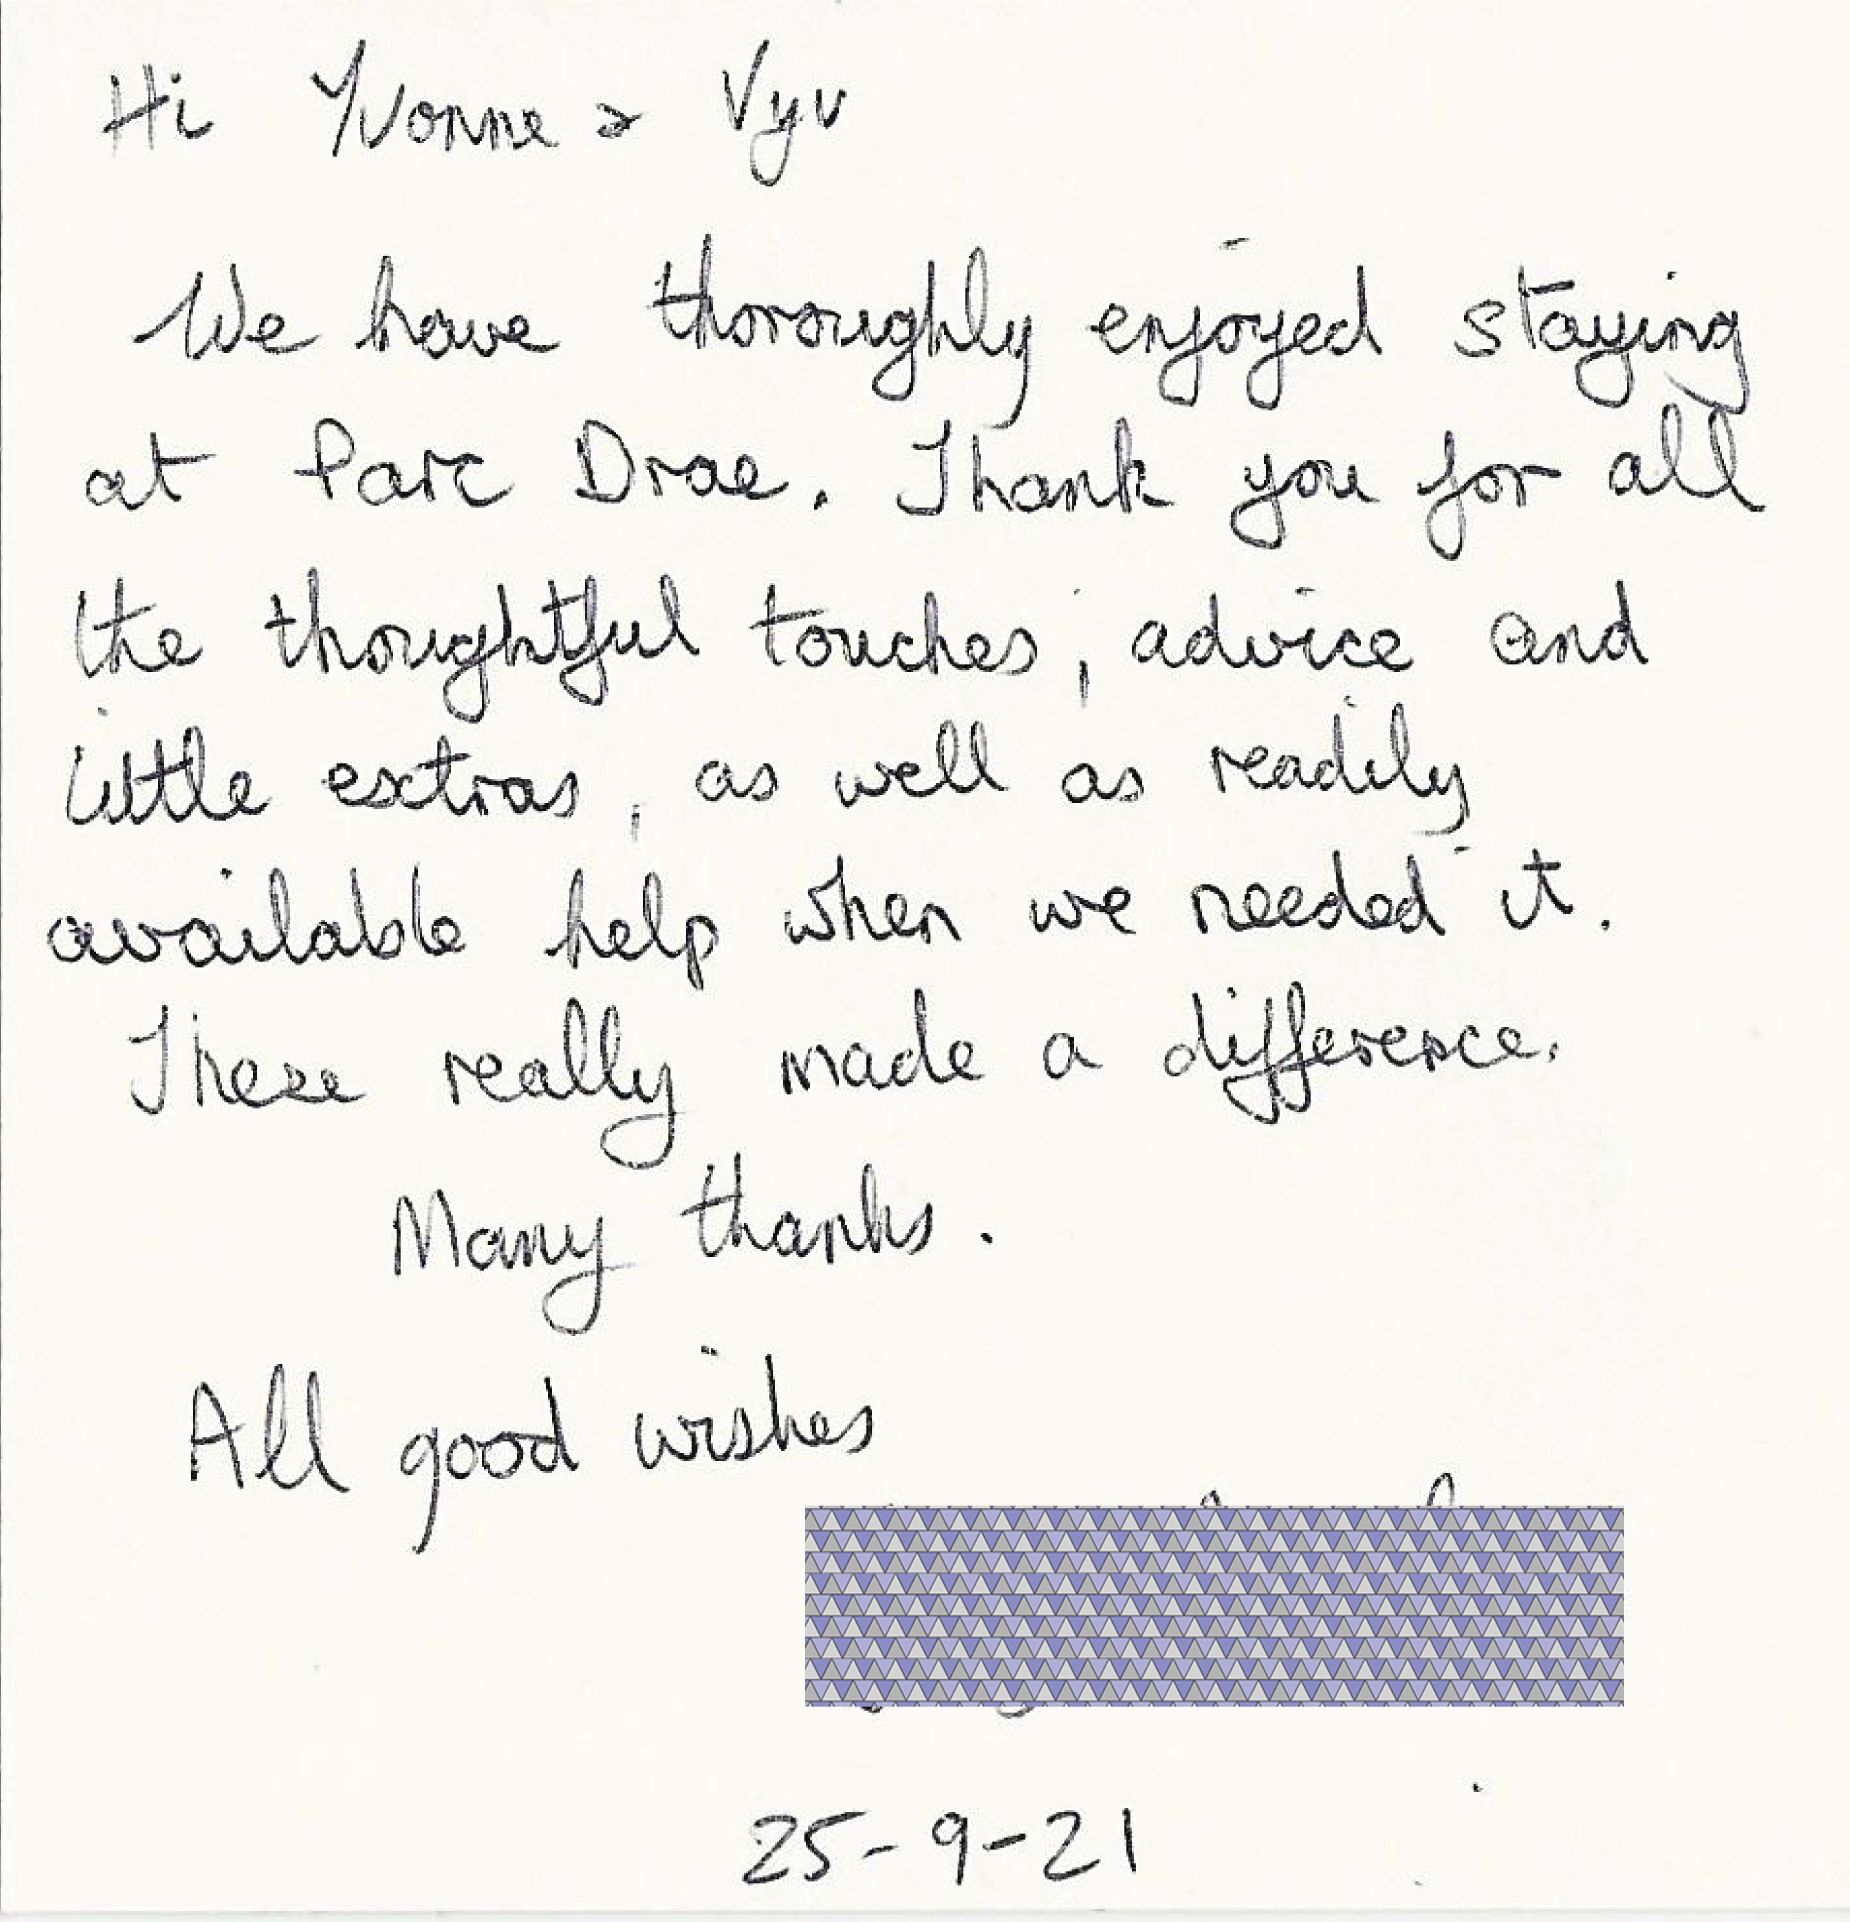 Hi Yvonne & Vyv
We have thoroughly enjoyed staying
at Parc Drae. Thank you for all
the thoughtful touches, advice and
little extras, as well as readily
available help when we needed it.
These really made a difference.
Many thanks.
All good wishes
25-9-21